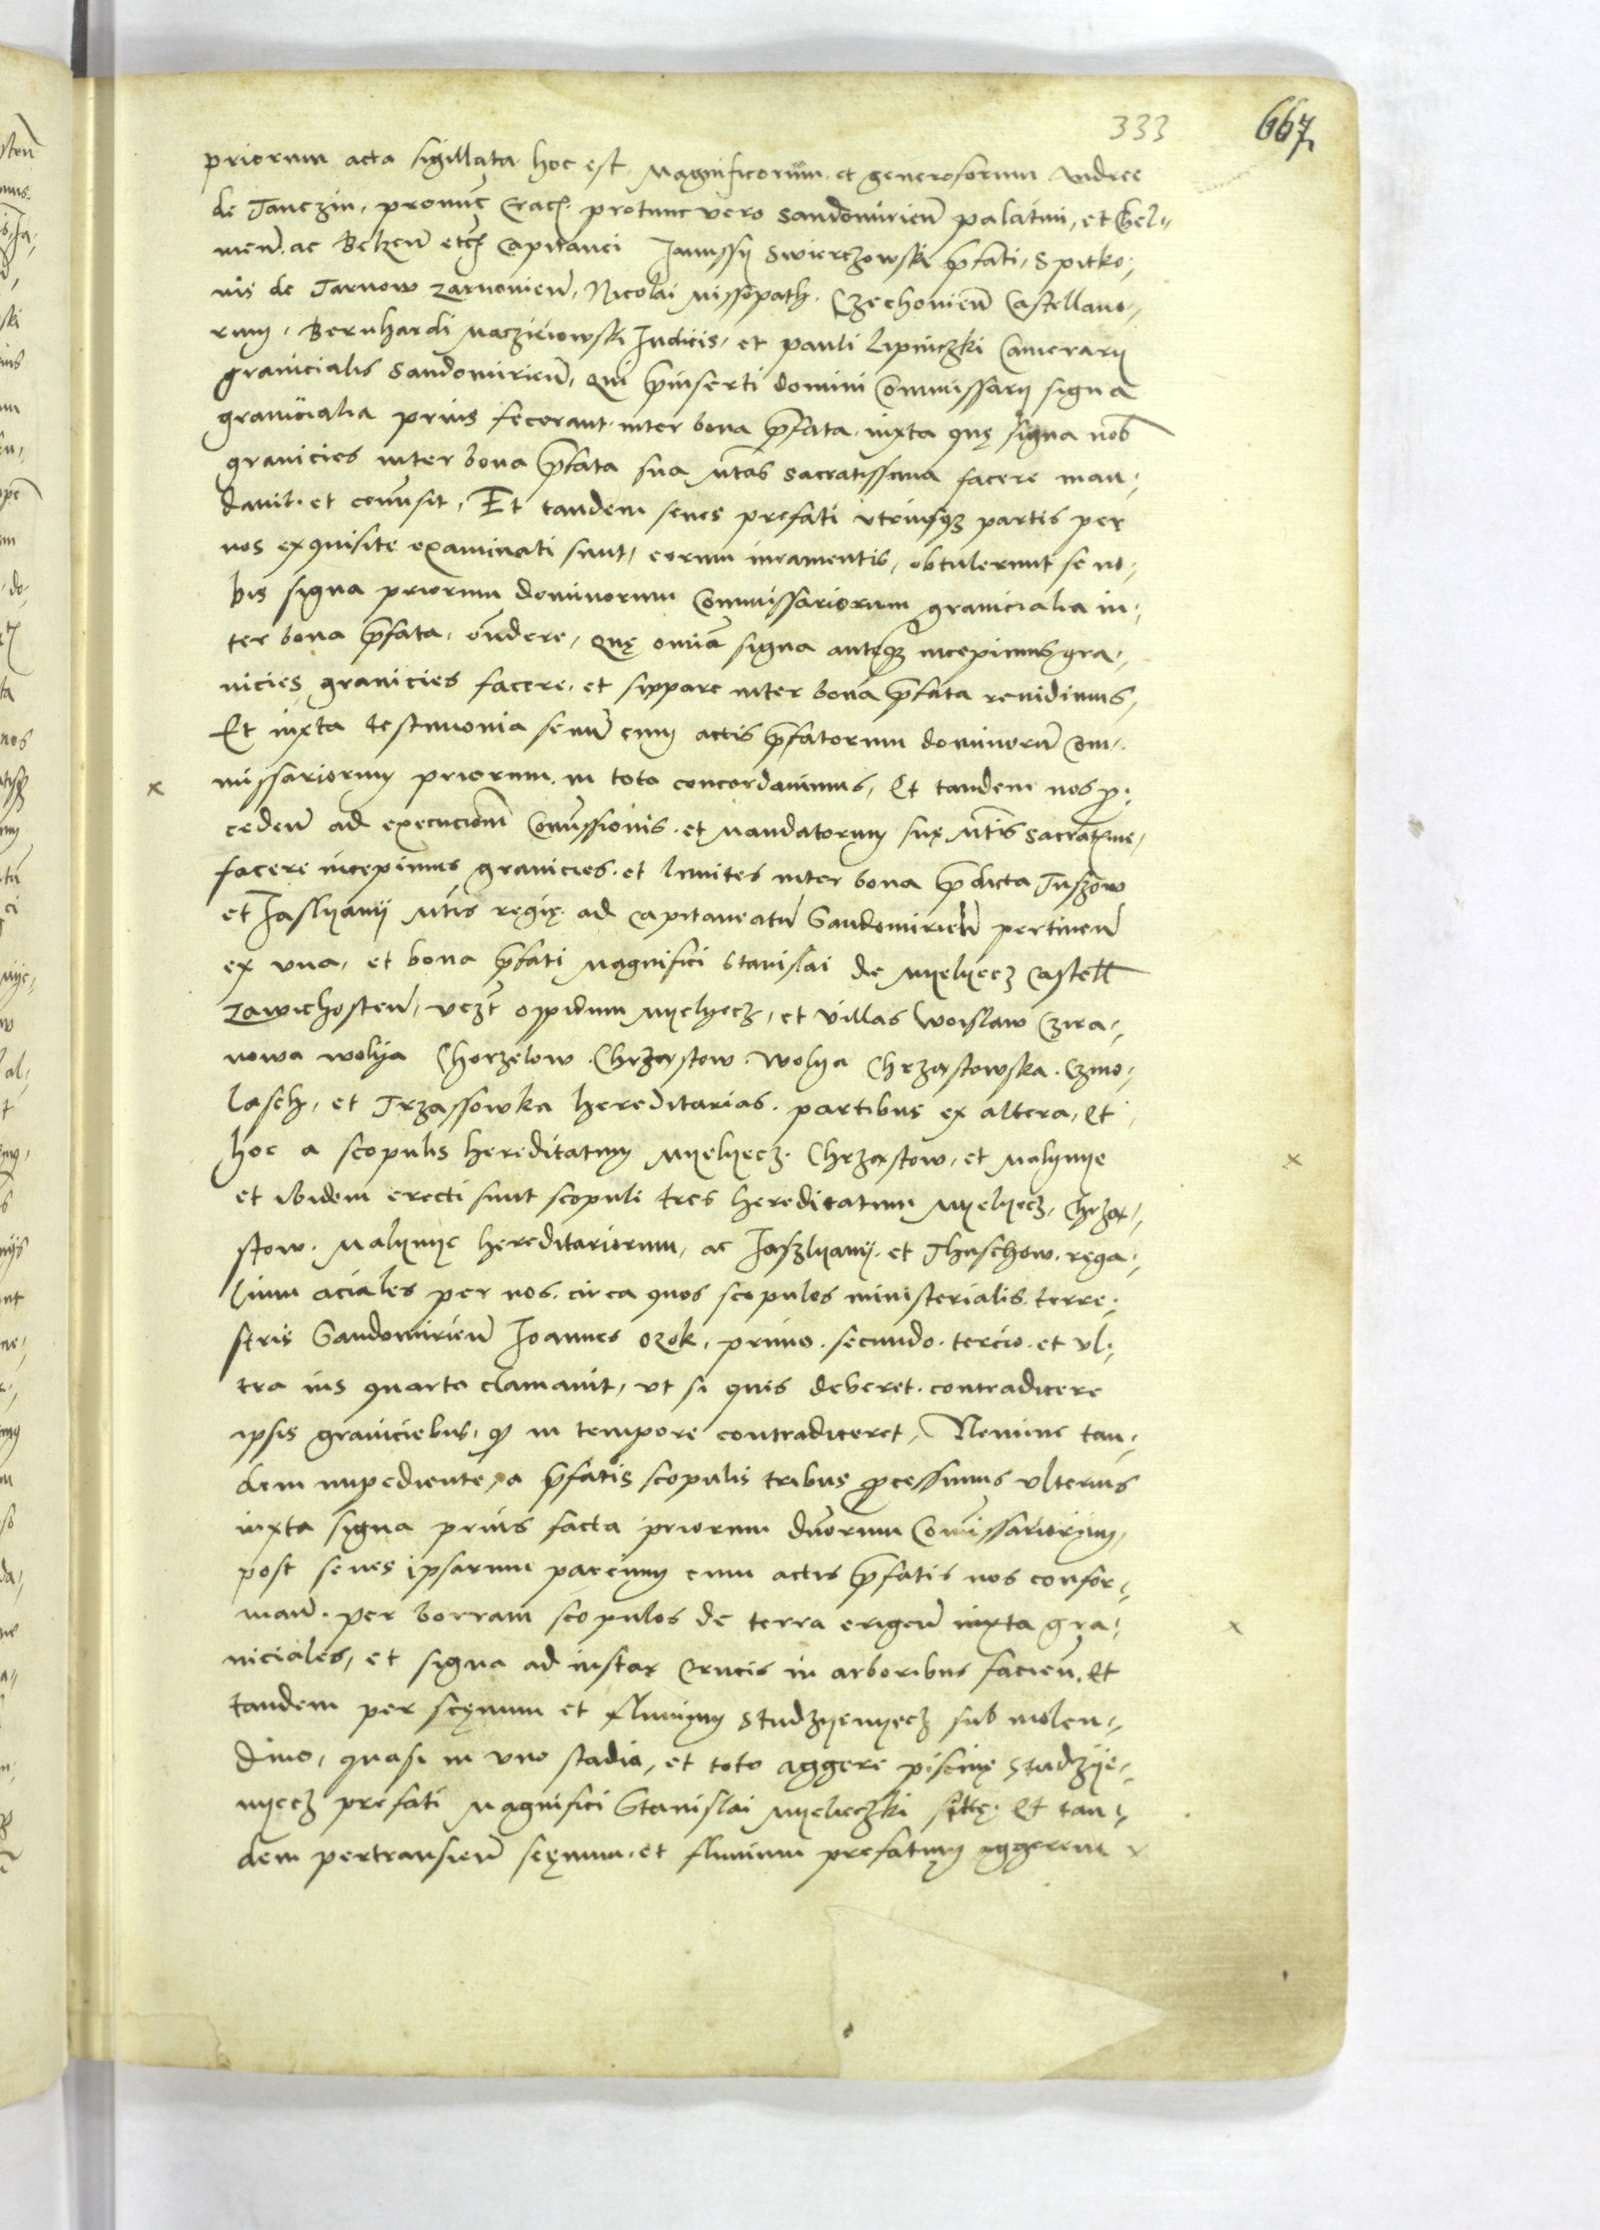 333
667
priorum acta sigillata hoc est Magnificorum et generosorum Andree
de Tanczin, pronuc Crac. protunc vero Sandomirien palatini, et Chel-
men. ac Belzen etc. Capitanei Janussÿ Swierczowski pfati, Spitko-
nis de Tarnow Zarnovien, Nicolai Czechovien Castellano-
rum, Bernhardi Macziriowski Judicis, et Pauli Lipniczki Camerarÿ
granicialis Sandomirien, qui pinserti domini Commissarÿ signa
granicialia prius fecerant inter bona pfata iuxta quę signa nob
granicies inter bona pfata sua Mtas sacratissima facere man-
davit et comisit, Et tandem senes prefati utriusq partis per
nos exquisite examinati sunt, eorum iuramentis, obtulerunt se no-
bis signa priorum dominorum Commissariorum granicialia in-
ter bona pfata, ondere, quę omia signa anteq incepimus gra-
nicies granicies facere, et sippare inter bona pfata revidimus,
Et iuxta testimonia senu cum actis pfatorum dominoru Com-
missariorum priorum in toto concordavimus, Et tandem nos p-
ceden ad execucionem Comissionis et Mandatorum suę Mtis Sacratime,
facere incepimus granicies et limites inter bona pdicta Tuszow
et Jaslyanÿ Mtis regię ad Capitaneatu Sandomirien pertinen
ex una, et bona pfati Magnifici Stanislai de Myelyecz Castell
Zawichosten, uczt oppidum Myelyecz, et villas Woislaw Czira-
nowa wolya Chorzelow Chrząstow Wolya Chrząstowska Czmo-
lasch, et Trzassowka hereditarias partibus ex altera, Et
hoc a scopulis hereditatum Myelyecz Chrząstow, et Malynye
et ibidem erecti sunt scopuli tres hereditatum Myelyecz, Chrzą-
stow Malynye hereditariorum, ac Jaszlyanÿ et Thuschow rega-
lium aciales per nos, circa quos scopulos ministerialis terre-
stris Sandomirien Joannes Ozok, primo secundo tercio et ul-
tra ius quarto clamavit, ut si quis deberet contradicere
ipsis graniciebus, q in tempore contradiceret, Nemine tan-
dem impediente, a pfatis scopulis tribus pcessimus ulterius
iuxta signa prius facta priorum duorum Comissariorum,
post senes ipsarum parcium cum actis pfatis nos confor-
man per borram scopulos de terra erigen iuxta gra-
niciales, et signa ad instar crucis in arboribus facien, Et
tandem per scęnum et fluvium Studzyenyecz sub molen-
dino, quasi in uno stadio, et toto aggere piscinę Studzye-
nyecz prefati Magnifici Stanislai Myeleczki sittę Et tan-
dem pertransien scęnum et fluvium prefatum aggerem